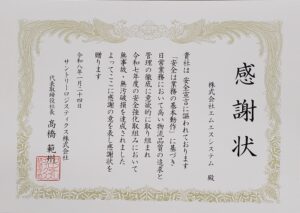 感謝状
株式会社エムエスシステム 殿
貴社は 安全宣言に謳われております
「安全は業務の基本動作」に基づき
日常業務において高い物流品質の追求と
管理の徹底に意欲的に取り組まれ
令和七年度の安全強化取組みにおいて
無事故・無汚破損を達成されました
よってここに感謝の意を表し感謝状を
贈ります
令和八年一月二十四日
サントリーロジスティクス株式会社
代表取締役社長 高橋 範州